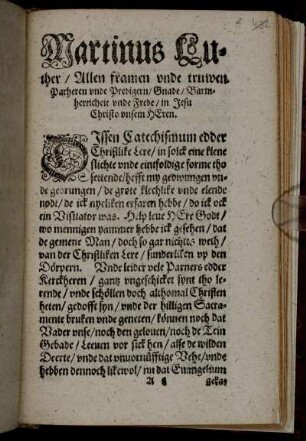 Martinus Lu-
ther / Allen framen vnde truwen
Parheren vnde Predigern / Gnade / Barm-
herticheit vnde Frede / in Jesu
Christo vnsem HEren.
DJssen Catechismum edder
Christlike Lere / in solck eine klene
slichte vnde eintfoldige forme tho
settende / hefft my gedwungen vn
de gedrungen / de grote klechlike vnde elende
nodt / de ick nyeliken erfaren hebbe / do ick ock
ein Visitator was. Help leue HEre Godt /
wo mennigen yammer hebbe ick gesehen / dat
de gemene Man / doch so gar nichtes weth /
van der Christliken Lere / sunderliken vp den
Dörpern. Vnde leider vele Parners edder
Kerckheren / gantz vngeschicket synt tho le-
rende / vnde schöllen doch althomal Christen
heten / gedofft syn / vnde der hilligen Sacra-
mente bruken vnde geneten / können noch dat
Vader vnse / noch den gelouen / noch de Tein
Gebade / Leeuen vor sick hen / alse de wilden
Deerte / vnde dat vnuornüfftige Vehe / vnde
hebben dennoch likewol / nu dat Euangelium
A
gekay